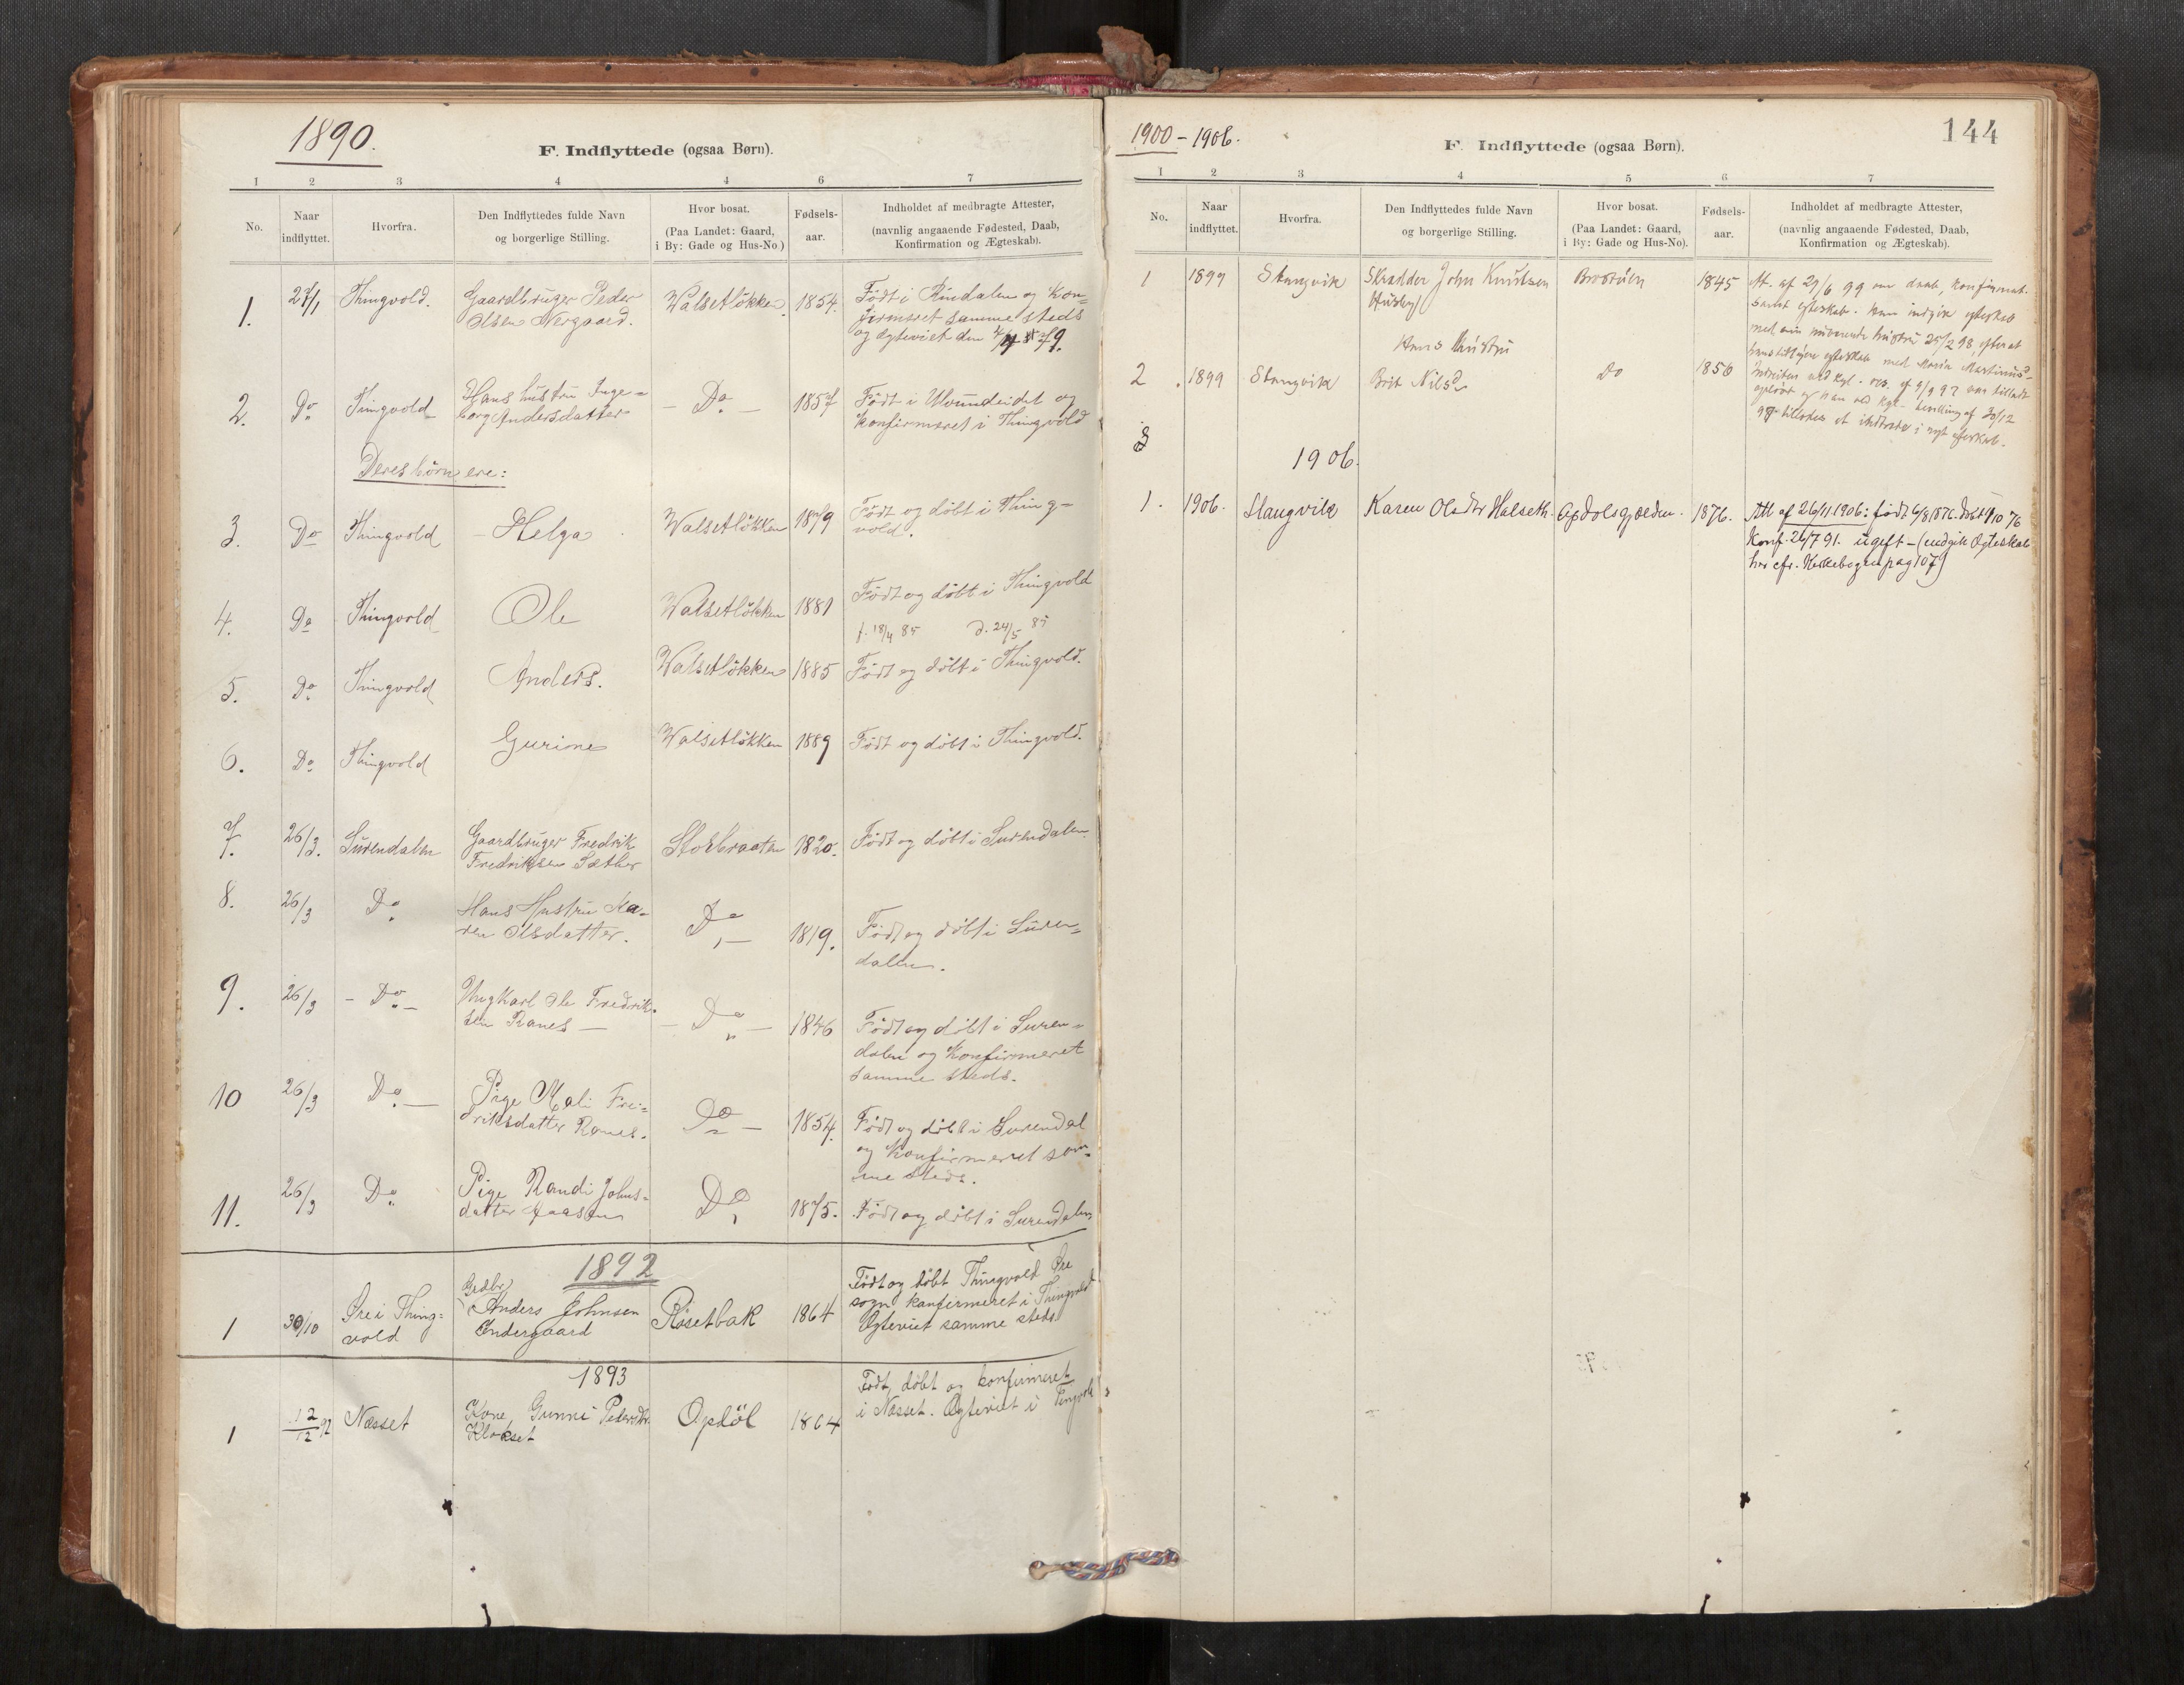 1890.
F. Indflyttede (ogsaa Børn).
1 2 3 4 4 6 7
No.
Naar indflyttet.
Hvorfra.
Den Indflyttedes fulde Navn og borgerlige Stilling.
Hvor bosat. (Paa Landet: Gaard, i By: Gade og Hus-No.)
Fødsels-aar.
Indholdet af medbragte Attester, (navnlig angaaende Fødested, Daab, Konfirmation og Ægteskab).
1. 27/1 Thingvold. Gaardbruger Peder Walsetløkken 1854. Født i Rindalen og Kon=
Olsen Nergaard. firmeret samme steds
og ægteviet den
2. Do Tingvold Hans hustru Inge= - Do - 1857 Født i Ulvundeidet og
borg Andersdatter konfirmeret i Thingvold
Deres børn ere:
3. Do Thingvold - Helga Walsetløkken 1879 Født og døbt i Thing=
vold.
4. Do Thingvold Ole Walsetløkken 1881 Født og døbt i Thingvold
f. 18/4 85 d. 24/5 85
5. Do Thingvold Anders. Walsetløkken 1885 Født og døbt i Thingvold.
6. Do Thingvold Gurine Walsetløkken 1889 Født og døbt i Thingvold.
7. 26/3. Surendalen Gaardbruger Fredrik Storbraaten 1820. Født og døbt i Surendalen
Fredriksen Sæther
8. 26/3 Do Hans Hustru Ka= Do 1819. Født og døbt i Suren=
ren Olsdatter. dalen.
9. 26/3 - Do - Ungkarl Ole Fredrik= - Do - 1846 Født og døbt i Suren=
sen Ranes - dalen og Konfirmeret
samme steds.
10 26/3 Do - Pige Mali Fre=
driksdatter Ranes. Do - 1854. Født og døbt i Surendal
og Konfirmeret sam=
me steds.
11. 26/3 Do Pige Randi Johns= Do 1875. Født og døbt i Surendalen
datter Aasen
1892
1 30/10 Øre i Thing= Grdbr Anders Johnsen Røsetbak 1864 Født og døbt Thingvold Øre
vold Endergaard sogn konfirmeret i Thingvold
Ægteviet samme steds
1893
1 12/12 92 Næsset Kone, Gunni Pedersdtr Opdøl 1864 Født, døbt og konfirmeret
Klokset i Næsset. Ægteviet i Tingvold
1900 - 1906.
F. Indflyttede (ogsaa Børn).
144
1 2 3 4 5 6 7
No.
Naar indflyttet.
Hvorfra.
Den Indflyttedes fulde Navn og borgerlige Stilling.
Hvor bosat. (Paa Landet: Gaard, i By: Gade og Hus-No).
Fødsels-aar.
Indholdet af medbragte Attester, (navnlig angaaende Fødested, Daab, Konfirmation og Ægteskab).
1 1899 Stangvik Skrædder John Knutsen 1845 At. af 29/6 99 om daab, konfirmat.
Husby) samt egteskab. Han indgik egteskab
med sin nuværende hustru 25/2 98, efterat
Hans Hustru hans tidligere egteskab med Maria Martinusd.
2 . 1899 Stangvik Brit Nilsd Do 1850 ved kgl. res. af 9/9 97 var tilladt
opløst og han ved kgl. bevilling af 30/12
97 tillodes at indtræde i nyt egteskab.
3
1906.
1. 1906. Stangvik Karen Olsdtr Halseth. Opdolsgjerden. 1876. Att af 26/11 1906: født 6/8 1876. døbt 1/10 76
Konf. 26/7 91. ugift - (indgik Ægteskab
her cfr. Kirkebogen pag 107)